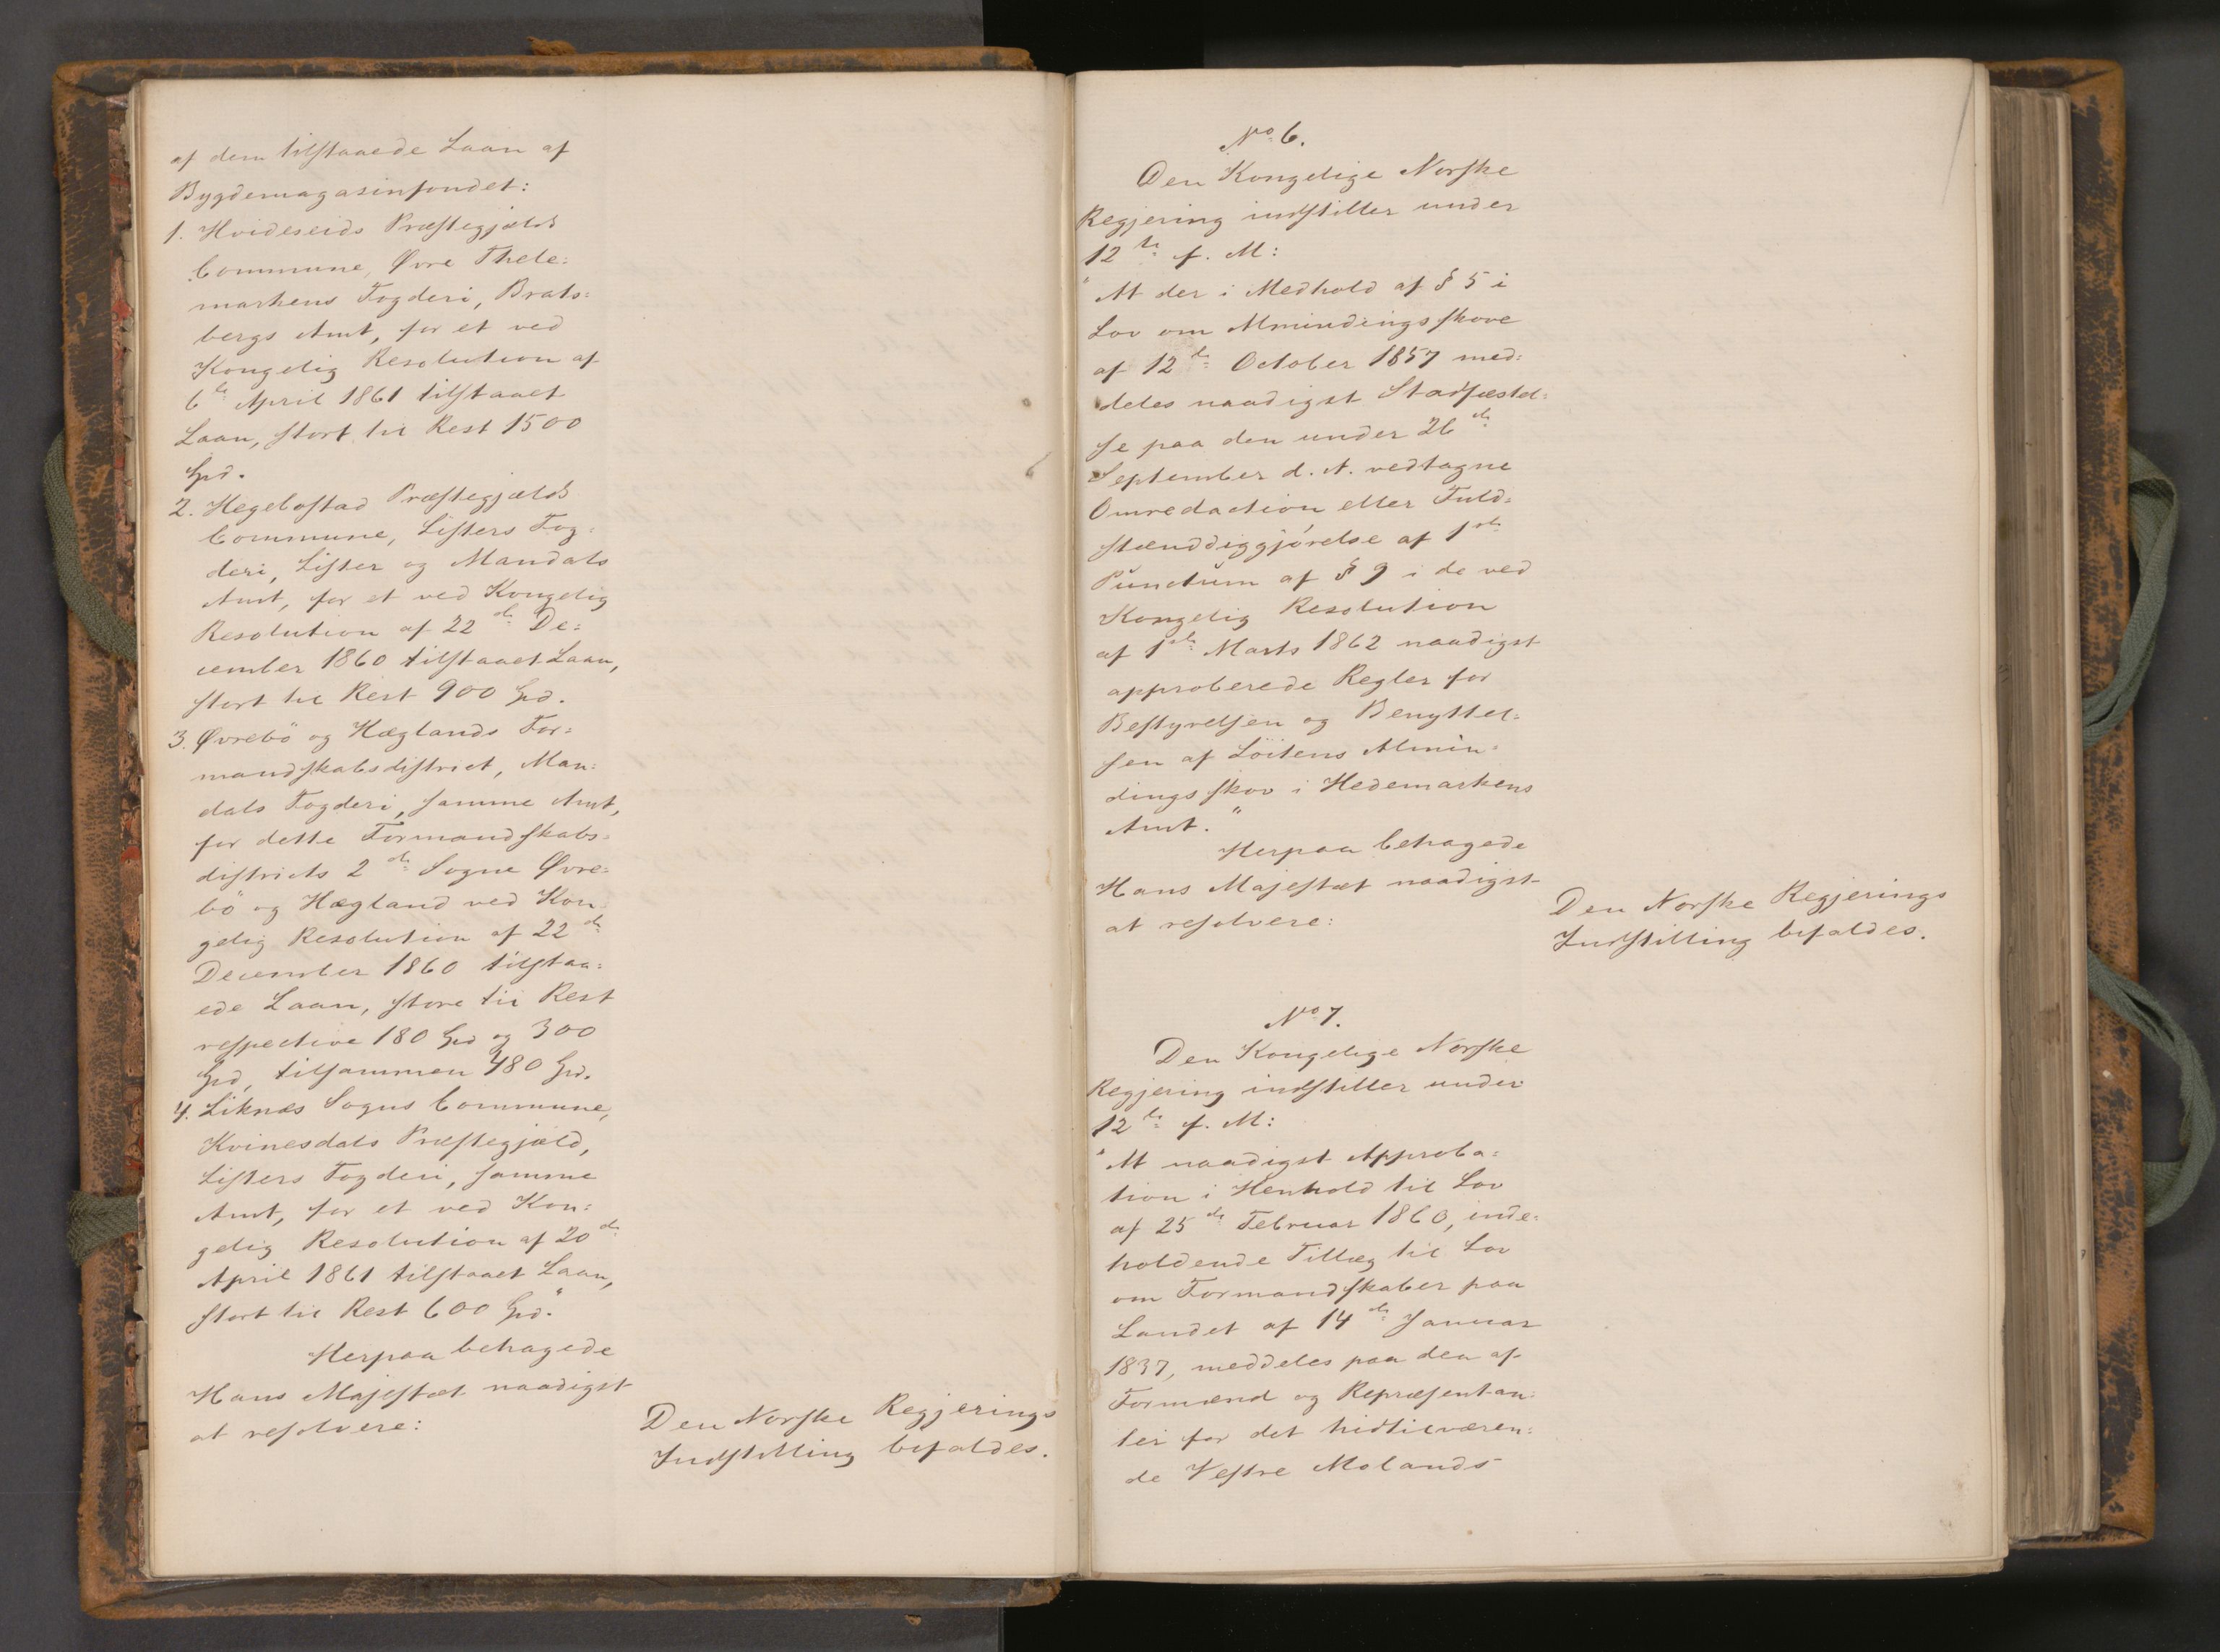 af dem tilstaaede Laan af
Bygdemagasinfondet:
1. Hvideseids Præstegjelds
Commune, Øvre Thele:
markens Fogderi, Brats:
bergs Amt, for et ved
Kongelig Resolution af
6te April 1861 tilstaaet
Laan, stort til Rest 1500
Spd.
2. Hegebostad Præstegjælds
Commune, Listers Fog:
deri, Lister og Mandals
Amt, for et ved Kongelig
Resolution af 22de De:
cember 1860 tilstaaet Laan,
stort til Rest 900 Spd.
3. Øvrebö og Hæglands For:
mandskabsdistrict, Man:
dals Fogderi, samme Amt,
for dette Formandskabs:
districts 2de Sogne Øvre:
bö og Hægland ved Kon:
gelig Resolution af 22de
December 1860 tilstaa:
ede Laan, store til Rest
respective 180 Spd og 300
Spd, tilsammen 480 Spd.
4. Liknæs Sogns Commune,
Kvinesdals Præstegjæld,
Listers Fogderi, samme
Amt, for et ved Kon:
gelig Resolution af 20de
April 1861 tilstaaet Laan,
stort til Rest 600 Spd."
Herpaa behagede
Hans Majestæt naadigst
at resolvere:
Den Norske Regjerings
Indstilling bifaldes.
No 6.
Den Kongelige Norske
Regjering indstiller under
12te f. M:
"At der i Medhold af § 5 i
Lov om Almindingsskove
af 12te October 1857 med:
deles naadigst Stadfæstel:
se paa den under 26de
September d. A. vedtagne
Omredaction eller Fuld:
stænddiggjörelse af 1ste
Punctum af § 9 i de ved
Kongelig Resolution
af 1ste Marts 1862 naadigst
approberede Regler for
Bestyrelsen og Benyttel:
sen af Löitens Almin:
dingsskov i Hedemarkens
Amt."
Herpaa behagede
Hans Majestæt naadigst
at resolvere:
Den Norske Regjerings
Indstilling bifaldes.
No 7.
Den Kongelige Norske
Regjering indstiller under
12te f. M:
"At naadigst Approba:
tion i Henhold til Lov
af 25de Februar 1860, inde:
holdende Tillæg til Lov
om Formandskaber paa
Landet af 14de Januar
1837, meddeles paa den af
Formænd og Repræsentan:
ter for det hidtilværen:
de Vestre Molands